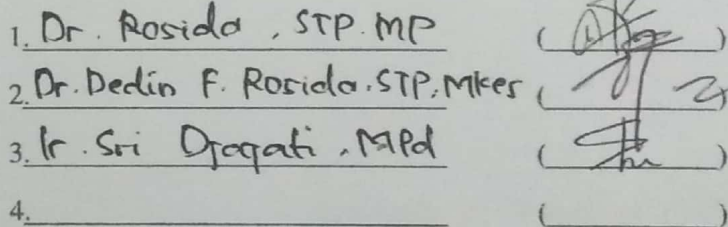 1. Dr. Rosida, STP. MP ( )
2. Dr. Dedin F. Rosida. STP, Mkes ( )
3. Ir. Sri Djagati, MPd ( )
4. ( )